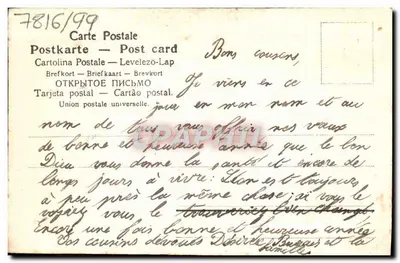 7816/99
Carte Postale
Postkarte — Post card
Cartolina Postale — Levelezo-Lap
Brefkort — Briefkaart — Brevkort
ОТКРЫТОЕ ПИСЬМО
Tarjeta postal — Cartão postal.
Union postale universelle.
Bons cousins,
Je viens en ce
jour en mon nom et au
nom de tous vous offrir nos vœux
de bonne et heureuse année que le bon
Dieu vous donne la santé et encore de
longs jours à vivre. Léon est toujours
à peu près la même chose, si vous le
voyiez vous le trouveriez bien changé
Encore une fois bonne et heureuse année
Vos cousins dévoués Désiré et la
famille